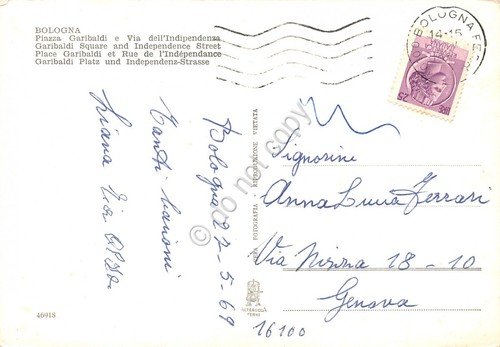 BOLOGNA
Piazza Garibaldi e Via dell'Indipendenza
Garibaldi Square and Independence Street
Place Garibaldi et Rue de l'Indépendance
Garibaldi Platz und Independenz-Strasse
BOLOGNA FE
14-15
Bologna 22-5-69
Tanti
Liana
VERA FOTOGRAFIA RIPRODUZIONE VIETATA
do not copy
Signorine
Anna Luisa Ferrari
Via 18-10
Genova
16100
46918
TERNI